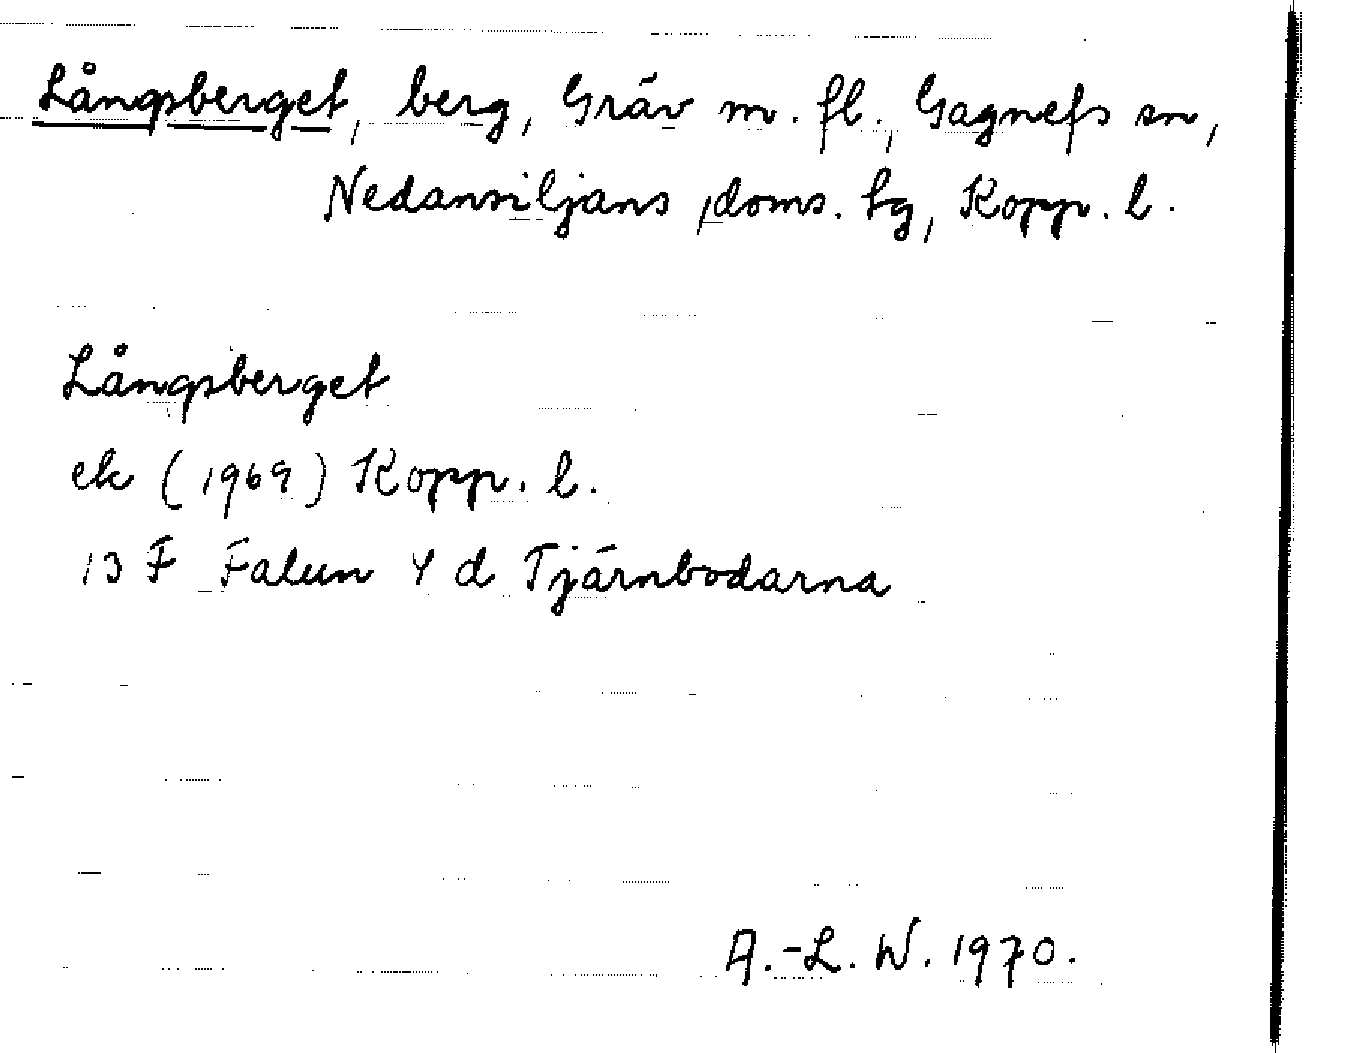 Långsberget, berg, Gräv m. fl., Gagnefs sn,
Nedansiljans doms. tg, Kopp. l.
Långsberget
ek (1969) Kopp. l.
13 F Falun 4 d Tjärnbodarna
A.-L. W. 1970.